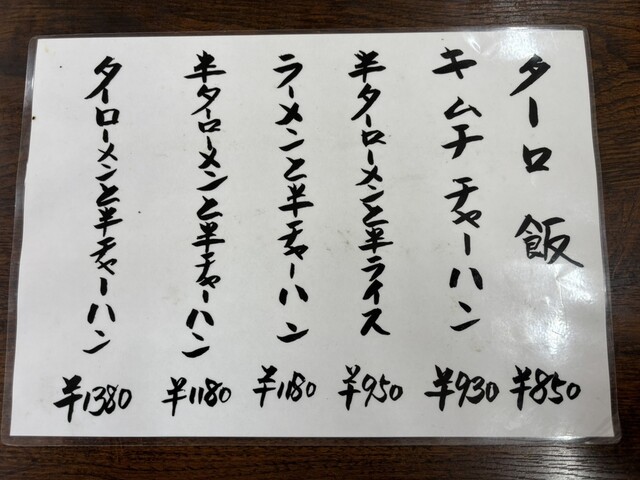 ターロ飯 ¥850
キムチチャーハン ¥930
半ターローメンと半ライス ¥950
ラーメンと半チャーハン ¥1180
半ターローメンと半チャーハン ¥1180
ターローメンと半チャーハン ¥1380